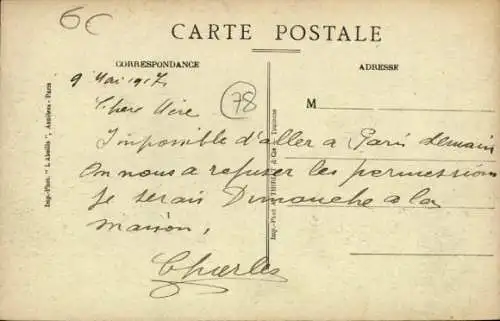 6c
CARTE POSTALE
CORRESPONDANCE
ADRESSE
9 Mai 1917
78
Chère Mère
M
Impossible d'aller a Paris demain
On nous a refuser les permissions
Je serais Dimanche a la
maison,
Charles
Imp-Phot. "L'Abeille", Asnières-Paris
Imp.-Phot. A. THIRIET & Cie Toulouse